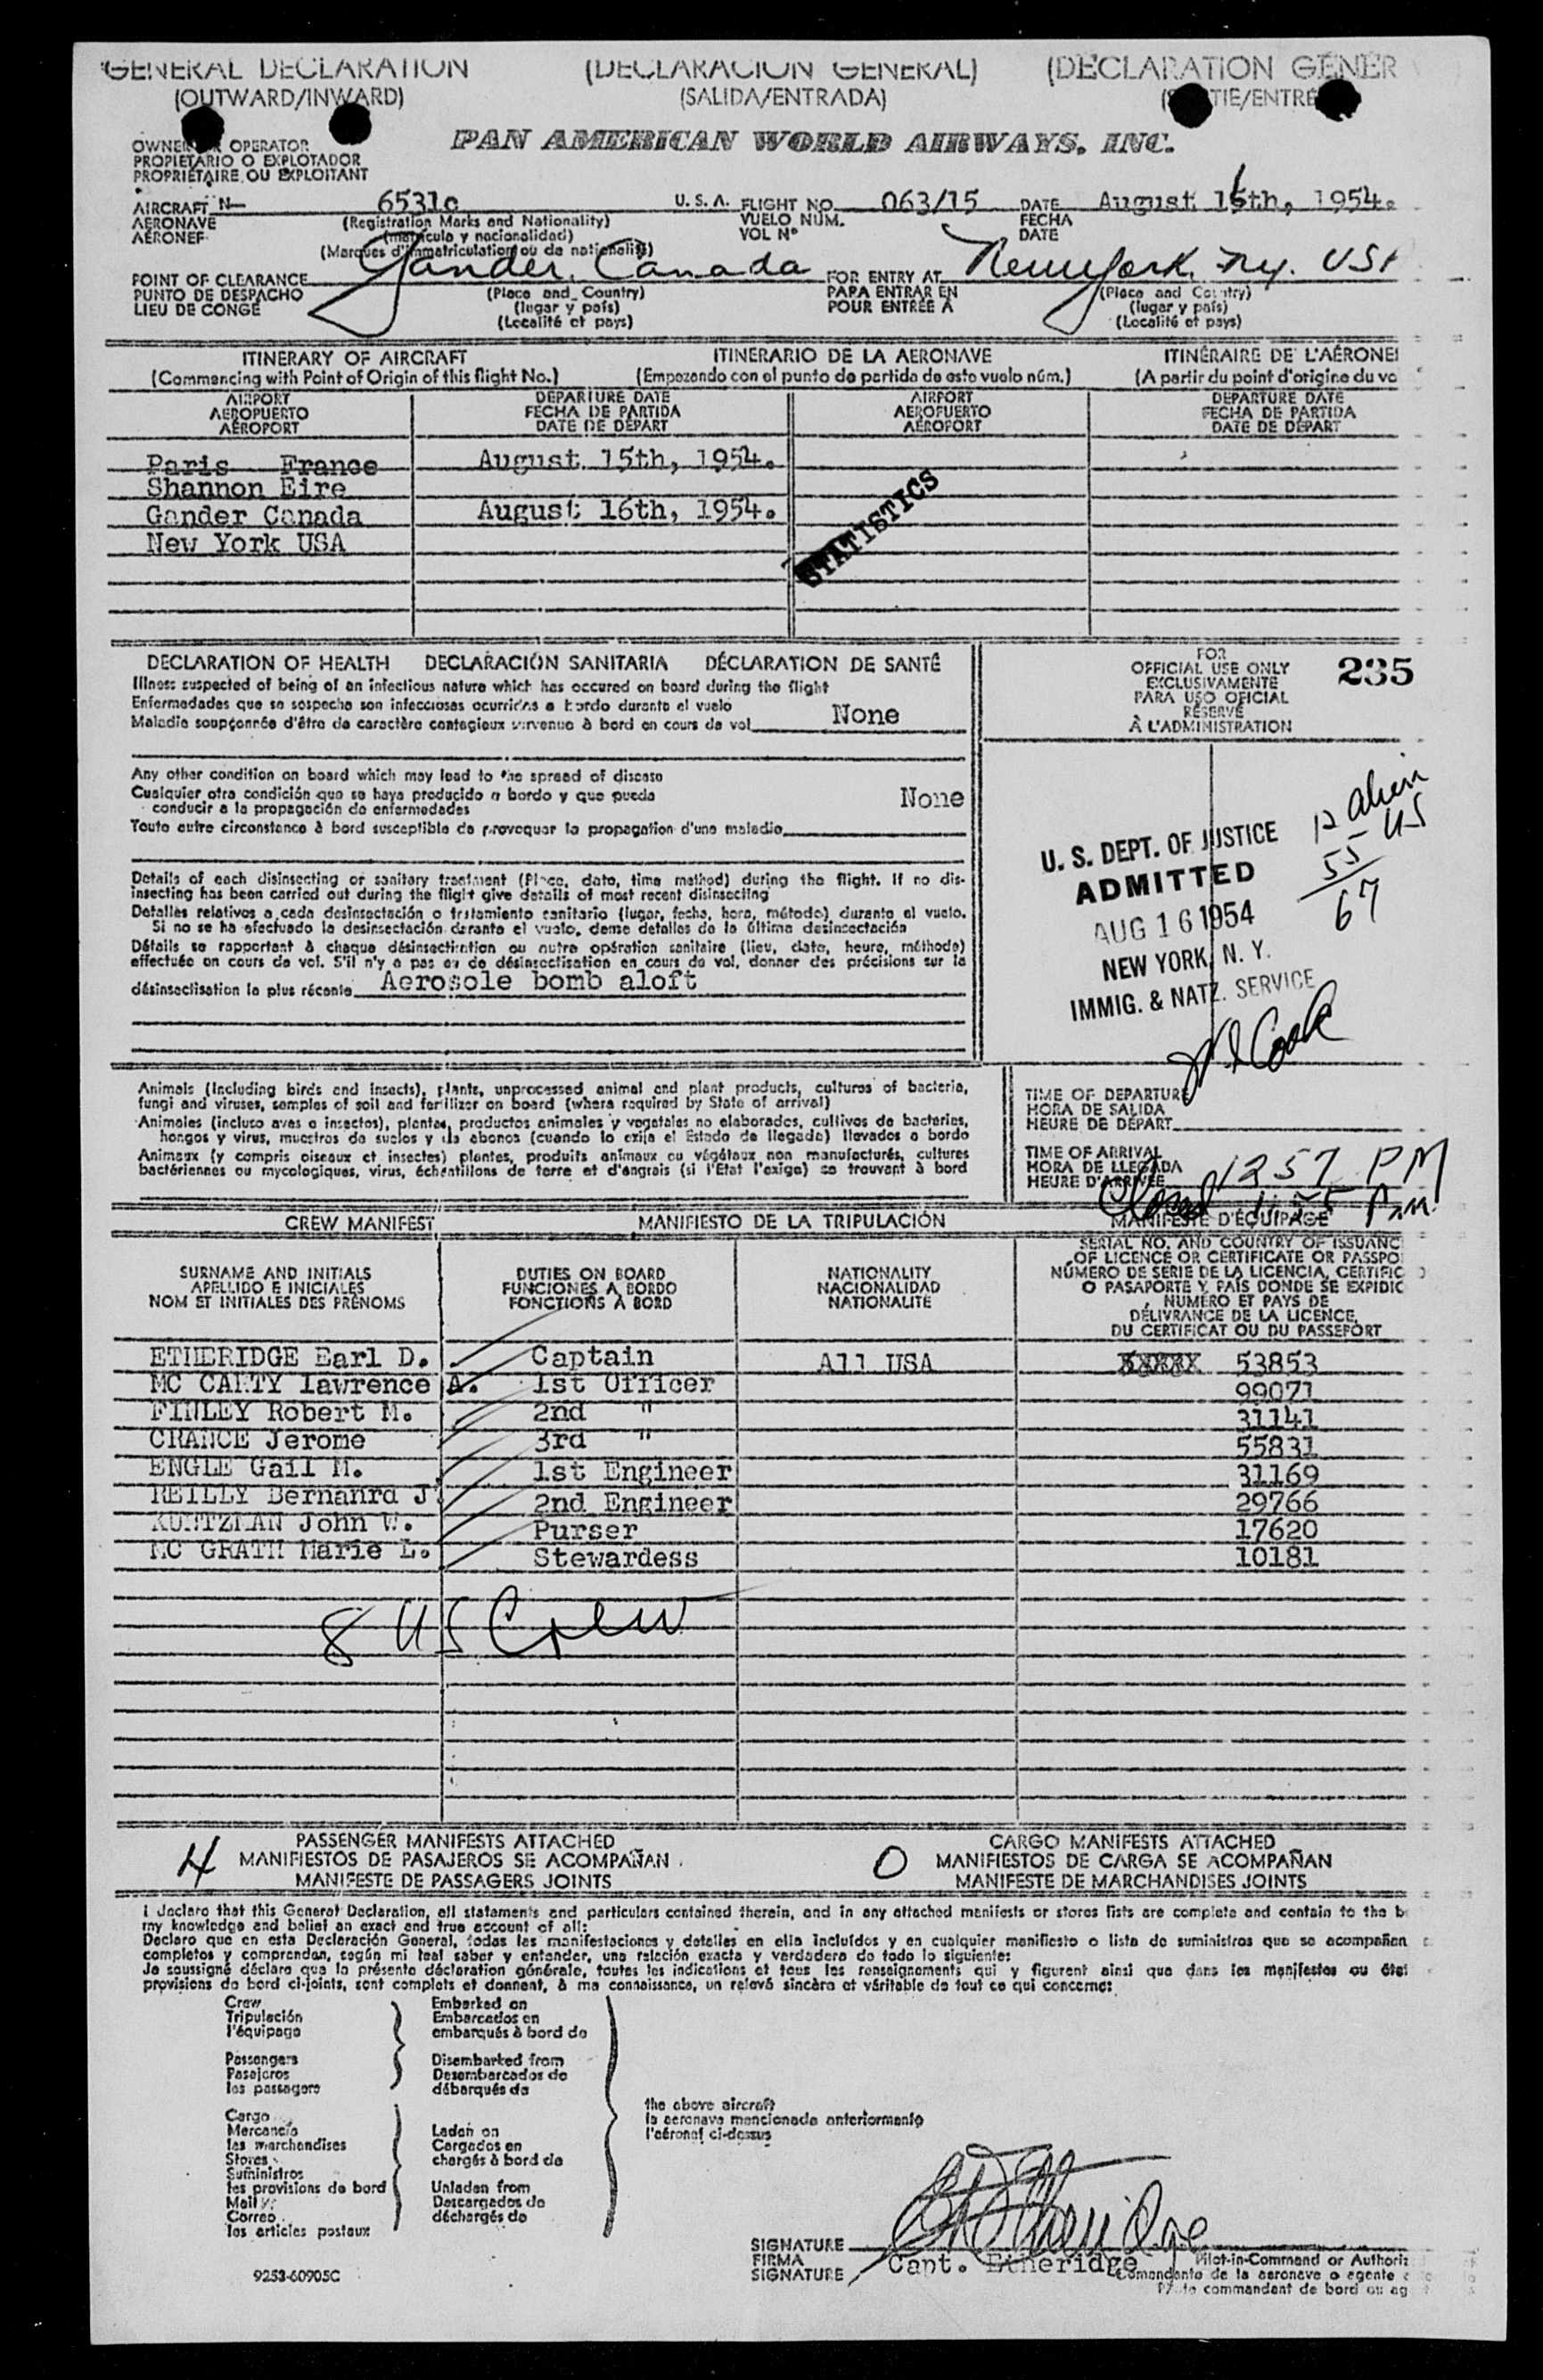 GENERAL DECLARATION (DECLARACION GENERAL) (DECLARATION GENER
(OUTWARD/INWARD) (SALIDA/ENTRADA) TIE/ENTRÉ
PAN AMERICAN WORLD AIRWAYS, INC.
OWNER OPERATOR
PROPIETARIO O EXPLOTADOR
PROPRIÉTAIRE OU EXPLOITANT
AIRCRAFT N— 6531c U.S.A. FLIGHT NO. 063/15 DATE August 16th, 1954.
AERONAVE (Registration Marks and Nationality) VUELO NÚM. FECHA
AÉRONEF (matrícula y nacionalidad) VOL Nº DATE
(Marques d'immatriculation ou de nationalité)
POINT OF CLEARANCE Gander, Canada FOR ENTRY AT New York, N.Y. USA
PUNTO DE DESPACHO (Place and Country) PARA ENTRAR EN (Place and Country)
LIEU DE CONGÉ (lugar y país) POUR ENTRÉE À (lugar y país)
(Localité et pays) (Localité et pays)
ITINERARY OF AIRCRAFT ITINERARIO DE LA AERONAVE ITINÉRAIRE DE L'AÉRONEF
(Commencing with Point of Origin of this flight No.) (Empezando con el punto de partida de este vuelo núm.) (A partir du point d'origine du vo
AIRPORT DEPARTURE DATE AIRPORT DEPARTURE DATE
AEROPUERTO FECHA DE PARTIDA AEROPUERTO FECHA DE PARTIDA
AÉROPORT DATE DE DÉPART AÉROPORT DATE DE DÉPART
Paris France August 15th, 1954.
Shannon Eire
Gander Canada August 16th, 1954.
New York USA
STATISTICS
DECLARATION OF HEALTH DECLARACIÓN SANITARIA DÉCLARATION DE SANTÉ
Illness suspected of being of an infectious nature which has occured on board during the flight
Enfermedades que se sospecha son infecciosas ocurridas a bordo durante el vuelo
Maladie soupçonnée d'être de caractère contagieux survenue à bord en cours de vol None
Any other condition on board which may lead to the spread of disease
Cualquier otra condición que se haya producido a bordo y que pueda None
conducir a la propagación de enfermedades
Toute autre circonstance à bord susceptible de provoquer la propagation d'une maladie
Details of each disinsecting or sanitary treatment (Place, date, time method) during the flight. If no dis-
insecting has been carried out during the flight give details of most recent disinsecting
Detalles relativos a cada desinsectación o tratamiento sanitario (lugar, fecha, hora, método) durante el vuelo.
Si no se ha efectuado la desinsectación durante el vuelo, deme detalles de la última desinsectación
Détails se rapportant à chaque désinsectisation ou autre opération sanitaire (lieu, date, heure, méthode)
effectuée en cours de vol. S'il n'y a pas eu de désinsectisation en cours de vol, donner des précisions sur la
désinsectisation la plus récente Aerosole bomb aloft
FOR
OFFICIAL USE ONLY 235
EXCLUSIVAMENTE
PARA USO OFICIAL
RÉSERVÉ
À L'ADMINISTRATION
12 alien
55 US
67
U. S. DEPT. OF JUSTICE
ADMITTED
AUG 16 1954
NEW YORK, N. Y.
IMMIG. & NATZ. SERVICE
Cook
Animals (including birds and insects), plants, unprocessed animal and plant products, cultures of bacteria,
fungi and viruses, samples of soil and fertilizer on board (where required by State of arrival)
Animales (incluso aves o insectos), plantas, productos animales y vegetales no elaborados, cultivos de bacterias,
hongos y virus, muestras de suelos y de abonos (cuando lo exija el Estado de llegada) llevados a bordo
Animaux (y compris oiseaux et insectes) plantes, produits animaux ou végétaux non manufacturés, cultures
bactériennes ou mycologiques, virus, échantillons de terre et d'engrais (si l'État l'exige) se trouvant à bord
TIME OF DEPARTURE
HORA DE SALIDA
HEURE DE DÉPART
TIME OF ARRIVAL
HORA DE LLEGADA 1257 PM
HEURE D'ARRIVÉE Closed P.M.
CREW MANIFEST MANIFIESTO DE LA TRIPULACIÓN MANIFESTE D'ÉQUIPAGE
SURNAME AND INITIALS DUTIES ON BOARD NATIONALITY SERIAL NO. AND COUNTRY OF ISSUANC
APELLIDO E INICIALES FUNCIONES A BORDO NACIONALIDAD OF LICENCE OR CERTIFICATE OR PASSPO
NOM ET INITIALES DES PRÉNOMS FONCTIONS À BORD NATIONALITÉ NÚMERO DE SERIE DE LA LICENCIA, CERTIFIC
O PASAPORTE Y PAÍS DONDE SE EXPIDIC
NUMÉRO ET PAYS DE
DÉLIVRANCE DE LA LICENCE,
DU CERTIFICAT OU DU PASSEPORT
ETHERIDGE Earl D. Captain All USA 53853
MC CARTY Lawrence A. 1st Officer 99071
FINLEY Robert M. 2nd " 31141
CHANCE Jerome 3rd " 55831
ENGLE Gail M. 1st Engineer 31169
REILLY Bernanrd J. 2nd Engineer 29766
KUNTZMAN John W. Purser 17620
MC GRATH Marie L. Stewardess 10181
8 US Crew
4 PASSENGER MANIFESTS ATTACHED 0 CARGO MANIFESTS ATTACHED
MANIFIESTOS DE PASAJEROS SE ACOMPAÑAN MANIFIESTOS DE CARGA SE ACOMPAÑAN
MANIFESTE DE PASSAGERS JOINTS MANIFESTE DE MARCHANDISES JOINTS
I declare that this General Declaration, all statements and particulars contained therein, and in any attached manifests or stores lists are complete and contain to the b
my knowledge and belief an exact and true account of all:
Declaro que en esta Declaración General, todas las manifestaciones y detalles en ella incluídos y en cualquier manifiesto o lista de suministros que se acompañan
completos y comprendan, según mi leal saber y entender, una relación exacta y verdadera de todo lo siguiente:
Je soussigné déclare que la présente déclaration générale, toutes les indications et tous les renseignements qui y figurent ainsi que dans les manifestes ou état
provisions de bord ci-joints, sont complets et donnent, à ma connaissance, un relevé sincère et véritable de tout ce qui concerne:
Crew Embarked on
Tripulación Embarcados en
l'équipage embarqués à bord de
Passengers Disembarked from
Pasajeros Desembarcados de
les passagers débarqués de
the above aircraft
la aeronave mencionada anteriormente
l'aéronef ci-dessus
Cargo
Mercancía Laden on
les marchandises Cargados en
Stores chargés à bord de
Suministros
les provisions de bord Unladen from
Mail Descargados de
Correo déchargés de
les articles postaux
SIGNATURE ED Etheridge
FIRMA Capt. Etheridge Pilot-in-Command or Authori
SIGNATURE Comandante de la aeronave o agente
commandant de bord ou ag
9253-60905C